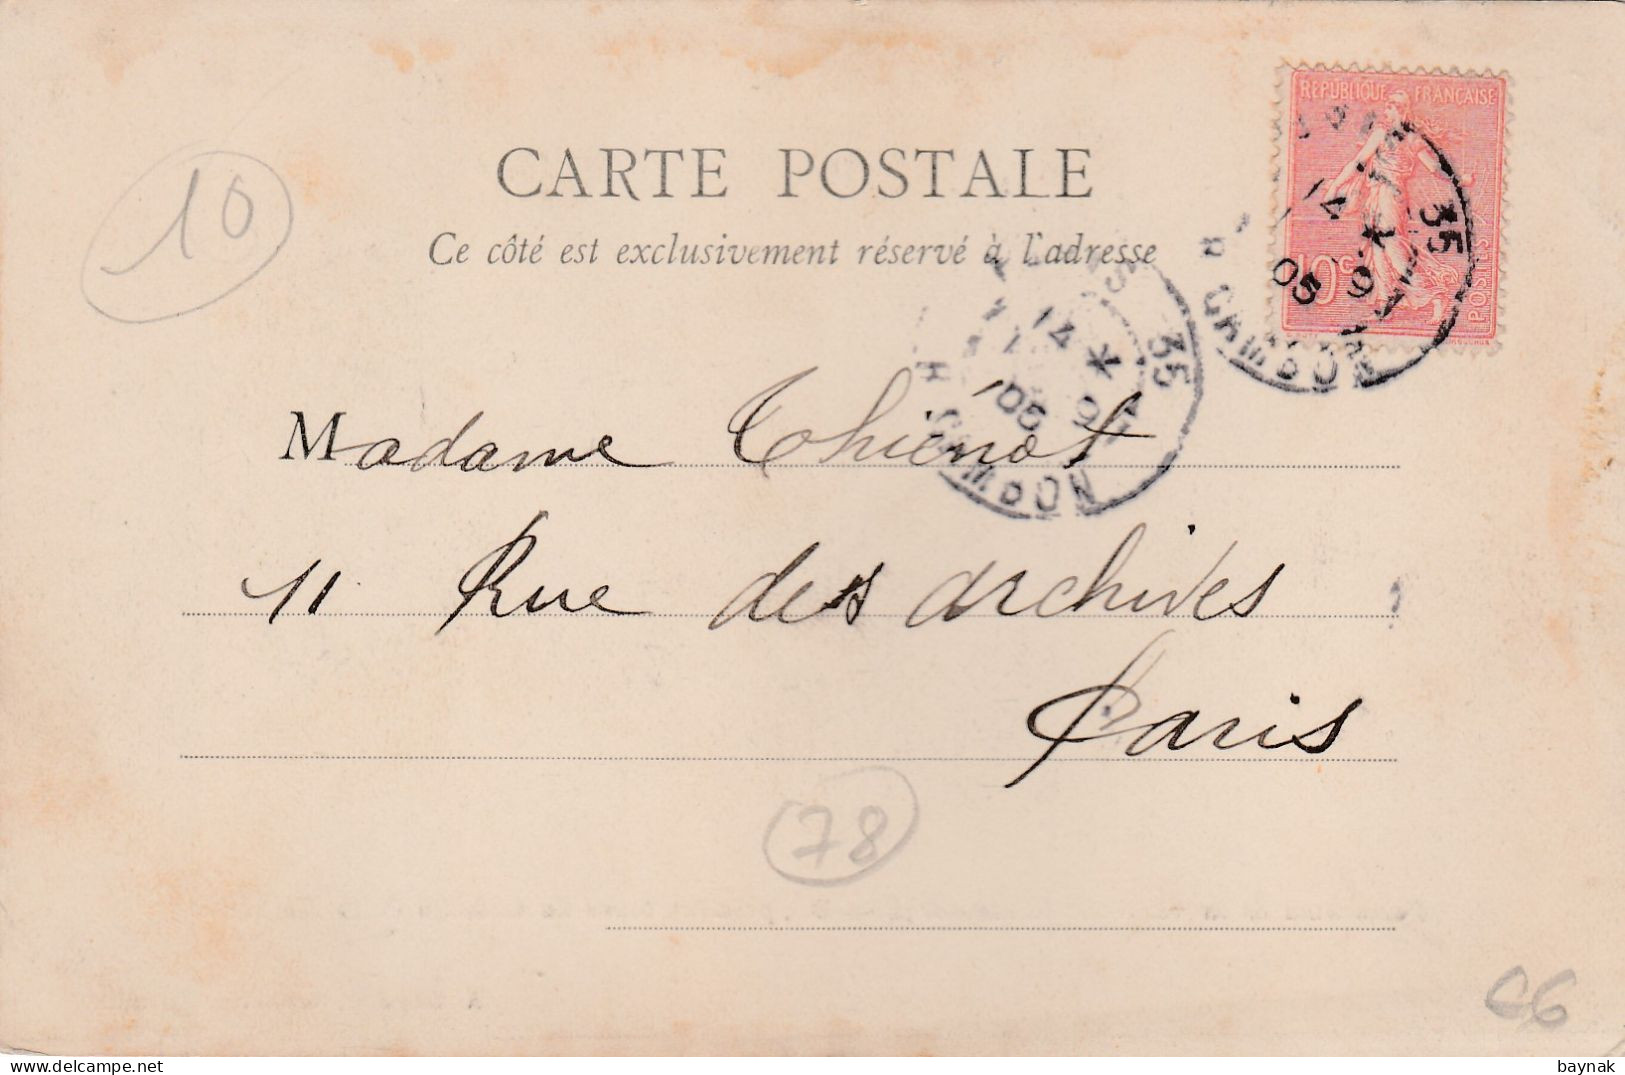 RÉPUBLIQUE FRANÇAISE
10
CARTE POSTALE
Ce côté est exclusivement réservé à l'adresse
10c
POSTES
35
14
9
05
35
14
9
05
Madame Thiénot
11 Rue des archives
Paris
78
C6
baynak